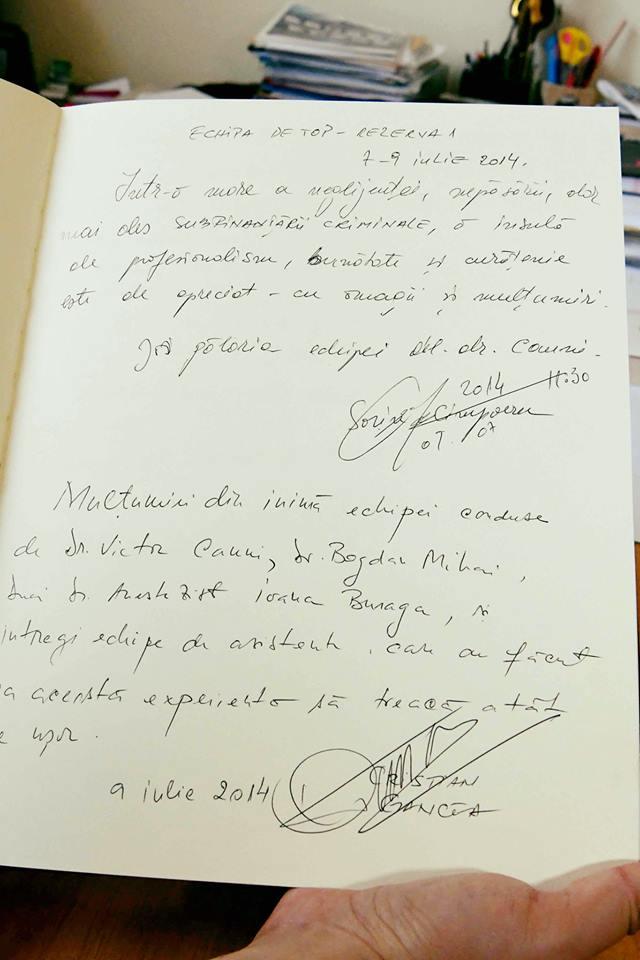 ECHIPA DE TOP - REZERVA 1
7-9 iulie 2014.
Într-o mare a neglijenței, nepăsării, dar
mai ales SUBFINANȚĂRII CRIMINALE, o insulă
de profesionalism, bunătate și curățenie
este de apreciat - cu omagii și mulțumiri.
Jos pălăria echipei dl. dr. Cauni.
2014 11:30
07 07
Mulțumiri din inimă echipei conduse
de Dr. Victor Cauni, Dr. Bogdan Mihai,
Dr. Anestezist Ioana Buraga, și
intregi echipe de asistente, care au făcut
ca această experiență să treacă atât
de ușor.
9 iulie 2014
CRISTIAN
GANCEA